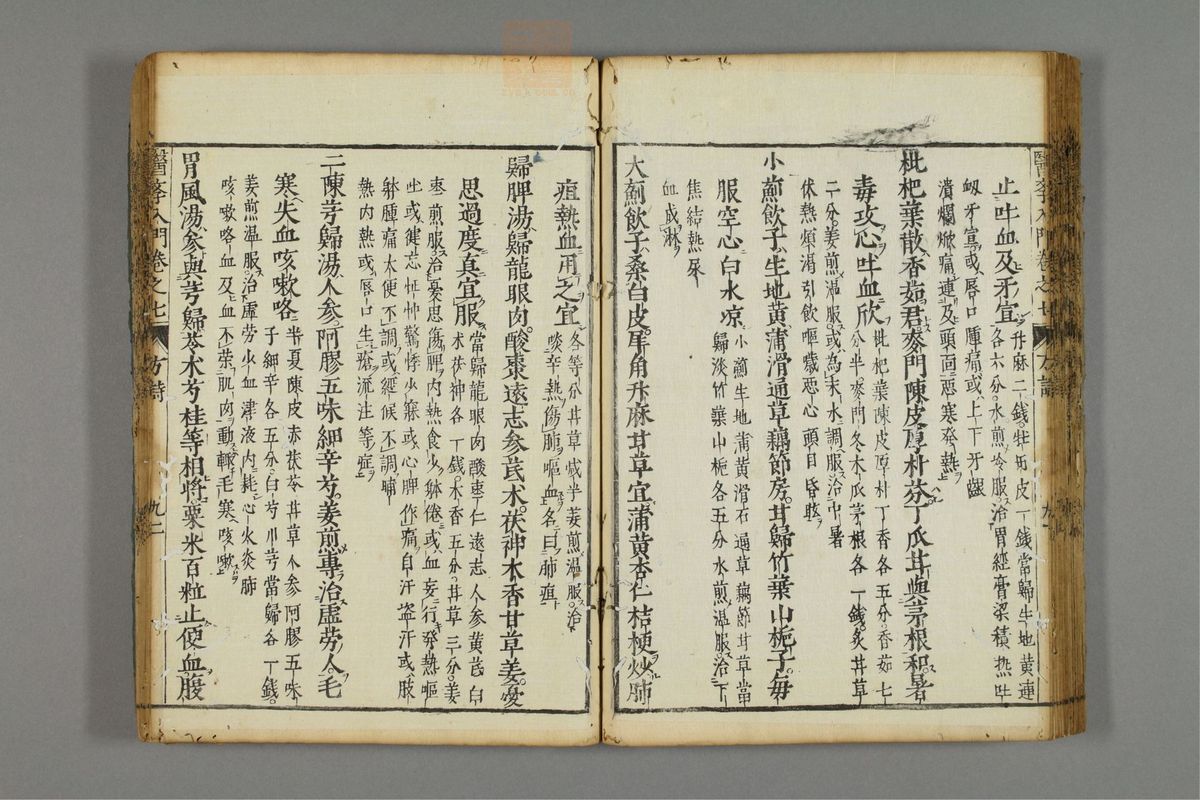 醫斈入門卷之七 方詩 九一
止吐血及牙宣
升麻二錢牡丹皮一錢當歸生地黃連
各六分水煎冷服治胃經膏梁積热吐
衂牙宣或唇口腫痛或上下牙齦
潰爛焮痛連及頭面惡寒發熱
枇杷葉散香茹君麥門陳皮厚朴芬丁瓜甘與茅根和暑
毒攻心吐血欣
枇杷葉陳皮厚朴丁香各五分香茹七
分半麥門冬木瓜茅根各一錢炙甘草
二分姜煎溫服或為末水調服治中暑
伏熱煩渴引飲嘔噦惡心頭目昏眩
小薊飲子生地黃蒲滑通草藕節房甘歸竹葉山梔子每
服空心白水凉
小薊生地蒲黃滑石通草藕節甘草當
歸淡竹葉山梔各五分水煎溫服治下
焦結熱尿
血成淋
大薊飲子桑白皮犀角升麻甘草宜蒲黃杏仁桔梗炒肺
疽熱血用之宜
各等分甘草减半姜煎溫服治
啖辛熱傷肺嘔血名曰肺疽
歸脾湯歸龍眼肉酸棗遠志參芪朮茯神木香甘草姜憂
思過度真宜服
當歸龍眼肉酸棗仁遠志人參黃芪白
朮茯神各一錢木香五分甘草三分姜
棗煎服治憂思傷脾內熱食少體倦或血妄行發熱嘔
吐或健忘怔忡驚悸少寐或心脾作痛自汗盗汗或肢
體腫痛大便不調或經候不調晡
熱內熱或唇口生瘡流注等症
二陳芎歸湯人參阿膠五味細辛芍姜煎專治虛勞人毛
寒失血咳嗽咯
半夏陳皮赤茯苓甘草人參阿膠五味
子細辛各五分白芍川芎當歸各一錢
姜煎溫服治虛勞少血津液內耗心火炎肺
咳嗽咯血及血不荣肌肉動輒毛寒咳嗽
胃風湯參與芎歸苓朮芍桂等相將粟米百粒止便血腹
醫斈入門卷之七 方詩 九二